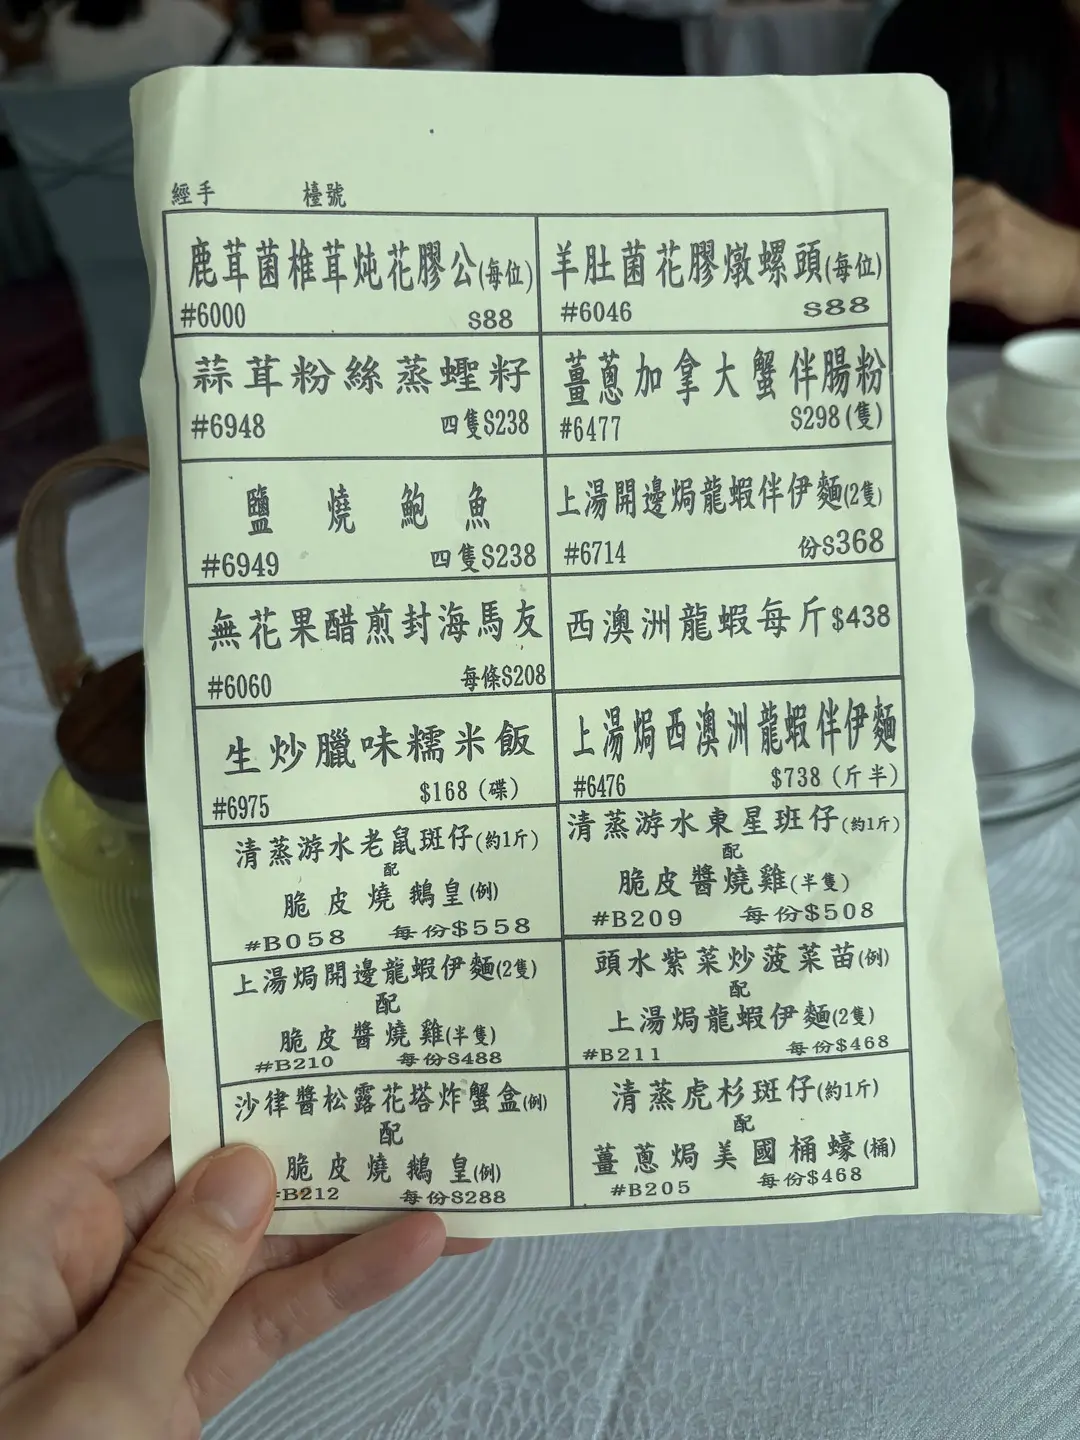 經手 檯號
鹿茸菌椎茸炖花膠公(每位)
#6000 $88
羊肚菌花膠燉螺頭(每位)
#6046 $88
蒜茸粉絲蒸蟶籽
#6948 四隻$238
薑蔥加拿大蟹伴腸粉
#6477 $298(隻)
鹽燒鮑魚
#6949 四隻$238
上湯開邊焗龍蝦伴伊麵(2隻)
#6714 份$368
無花果醋煎封海馬友
#6060 每條$208
西澳洲龍蝦每斤$438
生炒臘味糯米飯
#6975 $168(碟)
上湯焗西澳洲龍蝦伴伊麵
#6476 $738(斤半)
清蒸游水老鼠斑仔(約1斤)
配
脆皮燒鵝皇(例)
#B058 每份$558
清蒸游水東星班仔(約1斤)
配
脆皮醬燒雞(半隻)
#B209 每份$508
上湯焗開邊龍蝦伊麵(2隻)
配
脆皮醬燒雞(半隻)
#B210 每份$488
頭水紫菜炒菠菜苗(例)
配
上湯焗龍蝦伊麵(2隻)
#B211 每份$468
沙律醬松露花塔炸蟹盒(例)
配
脆皮燒鵝皇(例)
#B212 每份$288
清蒸虎杉斑仔(約1斤)
配
薑蔥焗美國桶蠔(桶)
#B205 每份$468